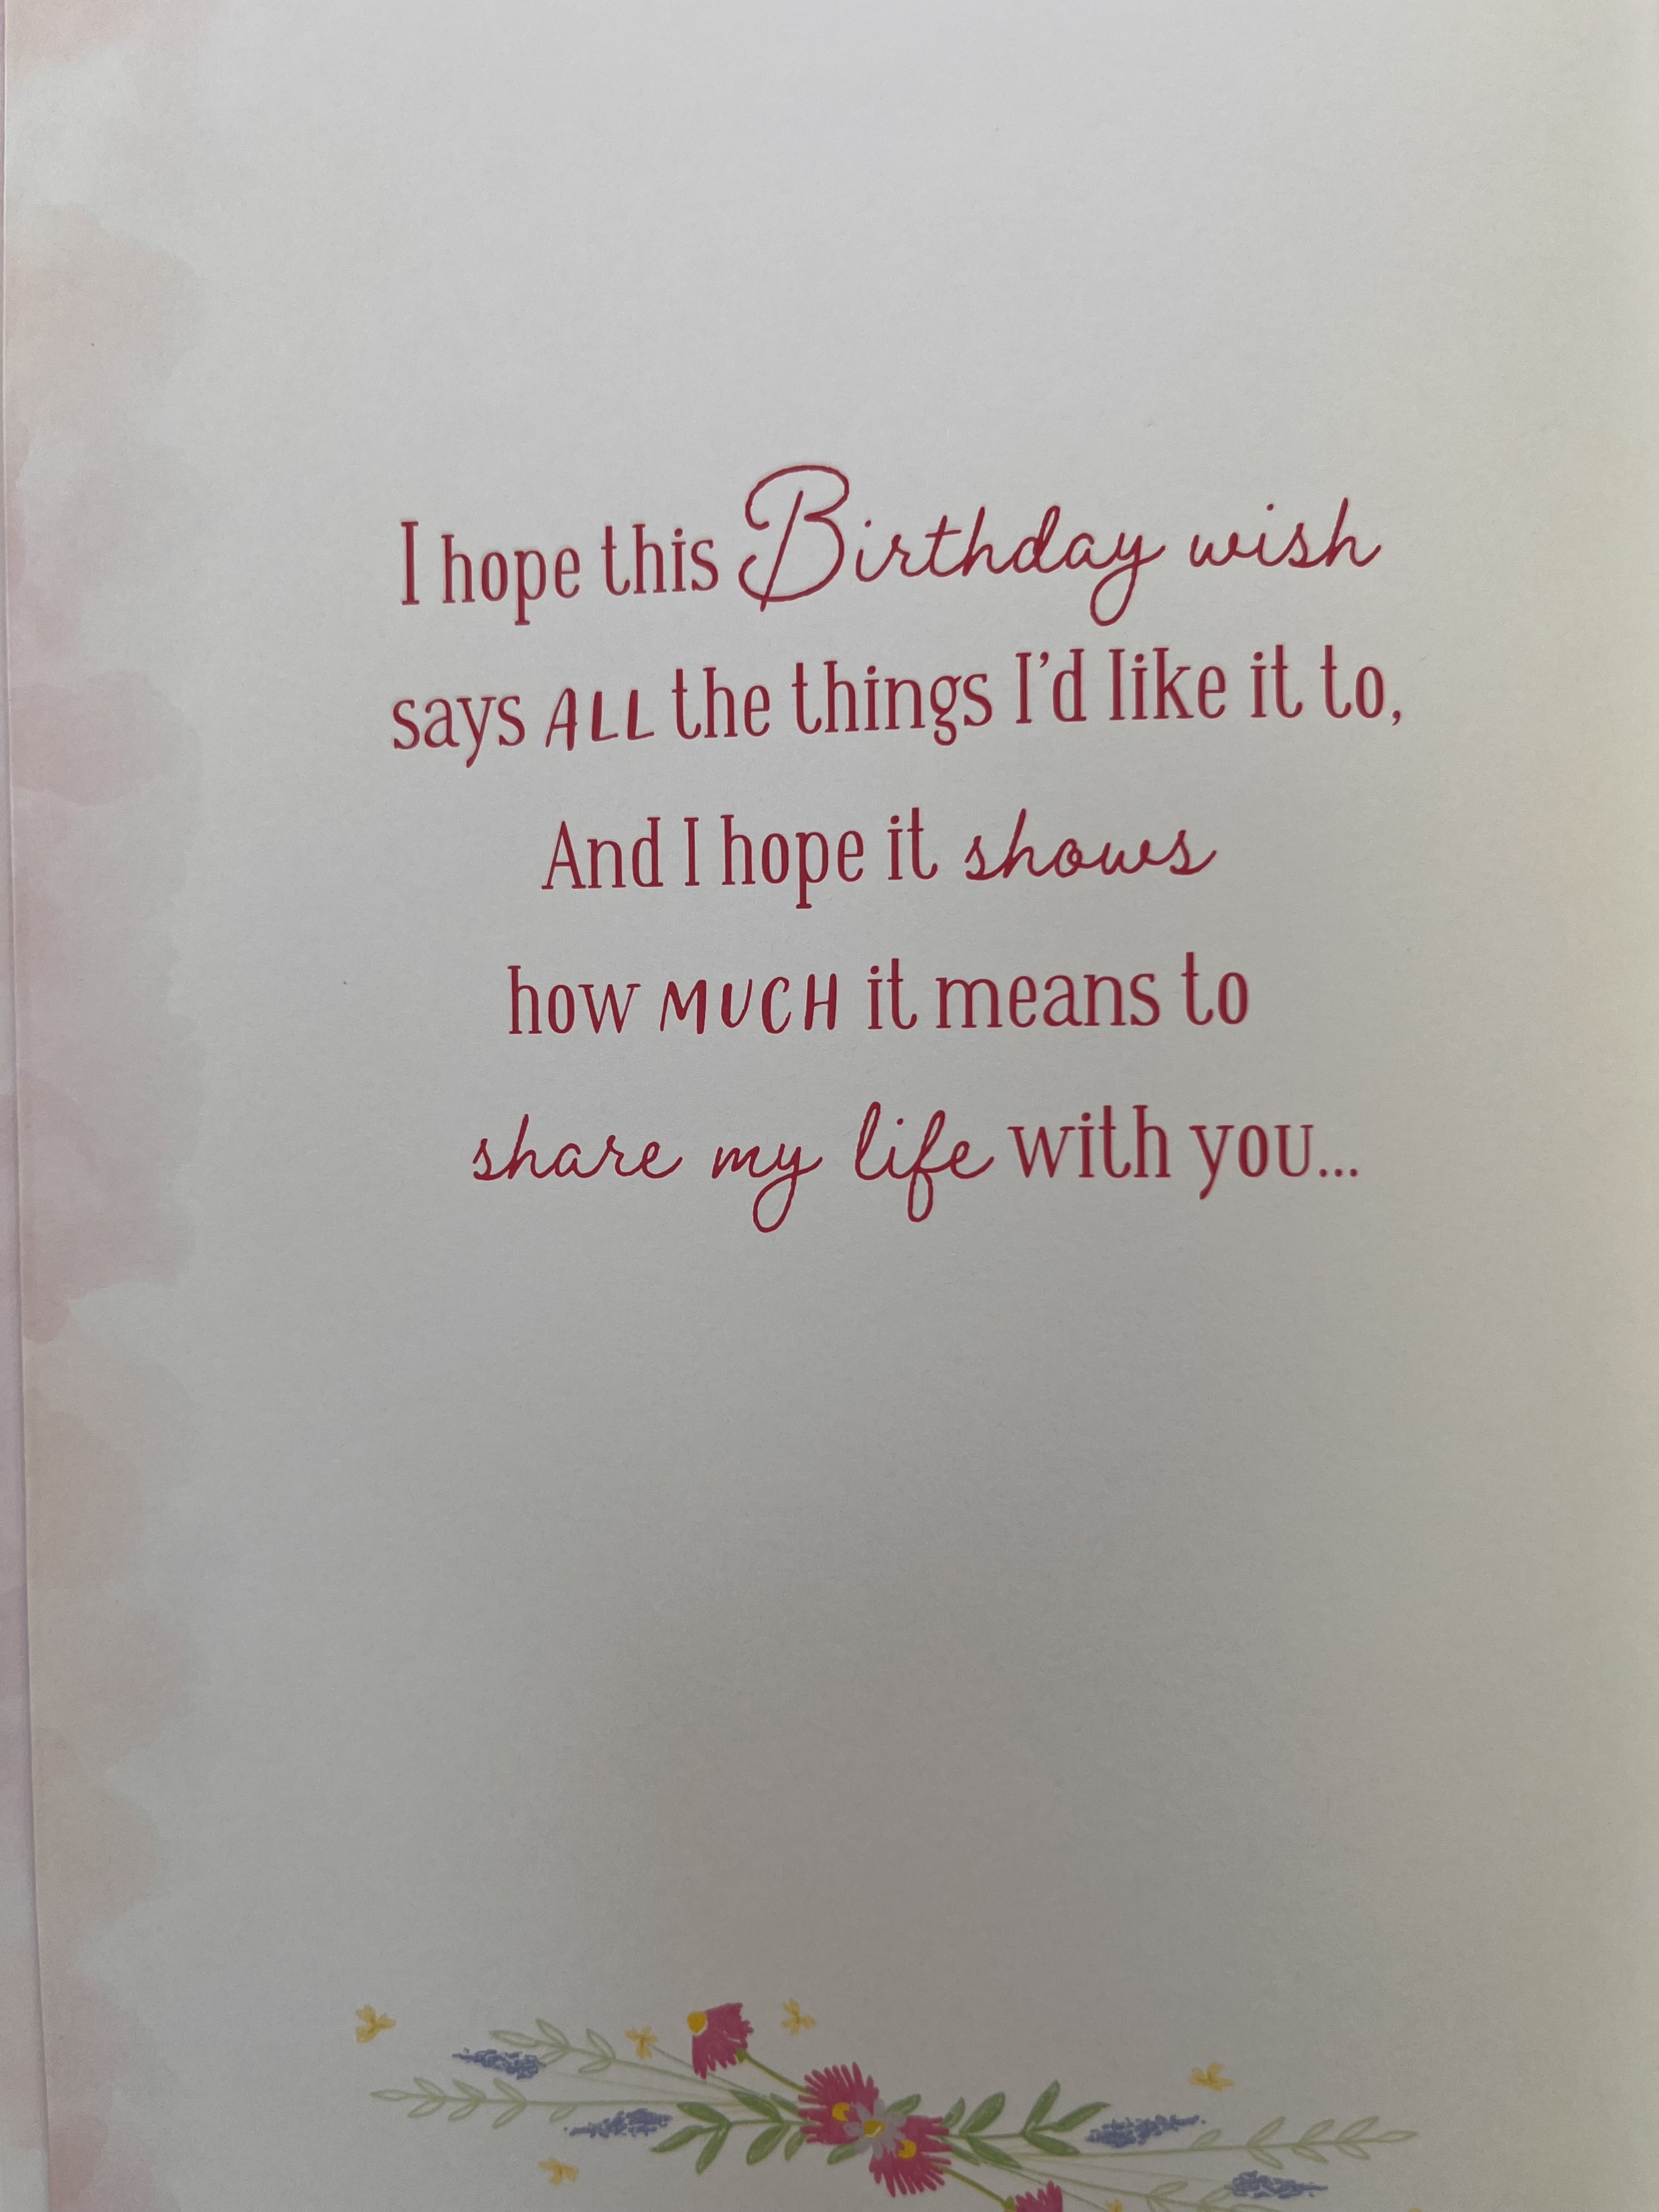 I hope this Birthday wish
says ALL the things I'd like it to,
And I hope it shows
how MUCH it means to
share my life with you...